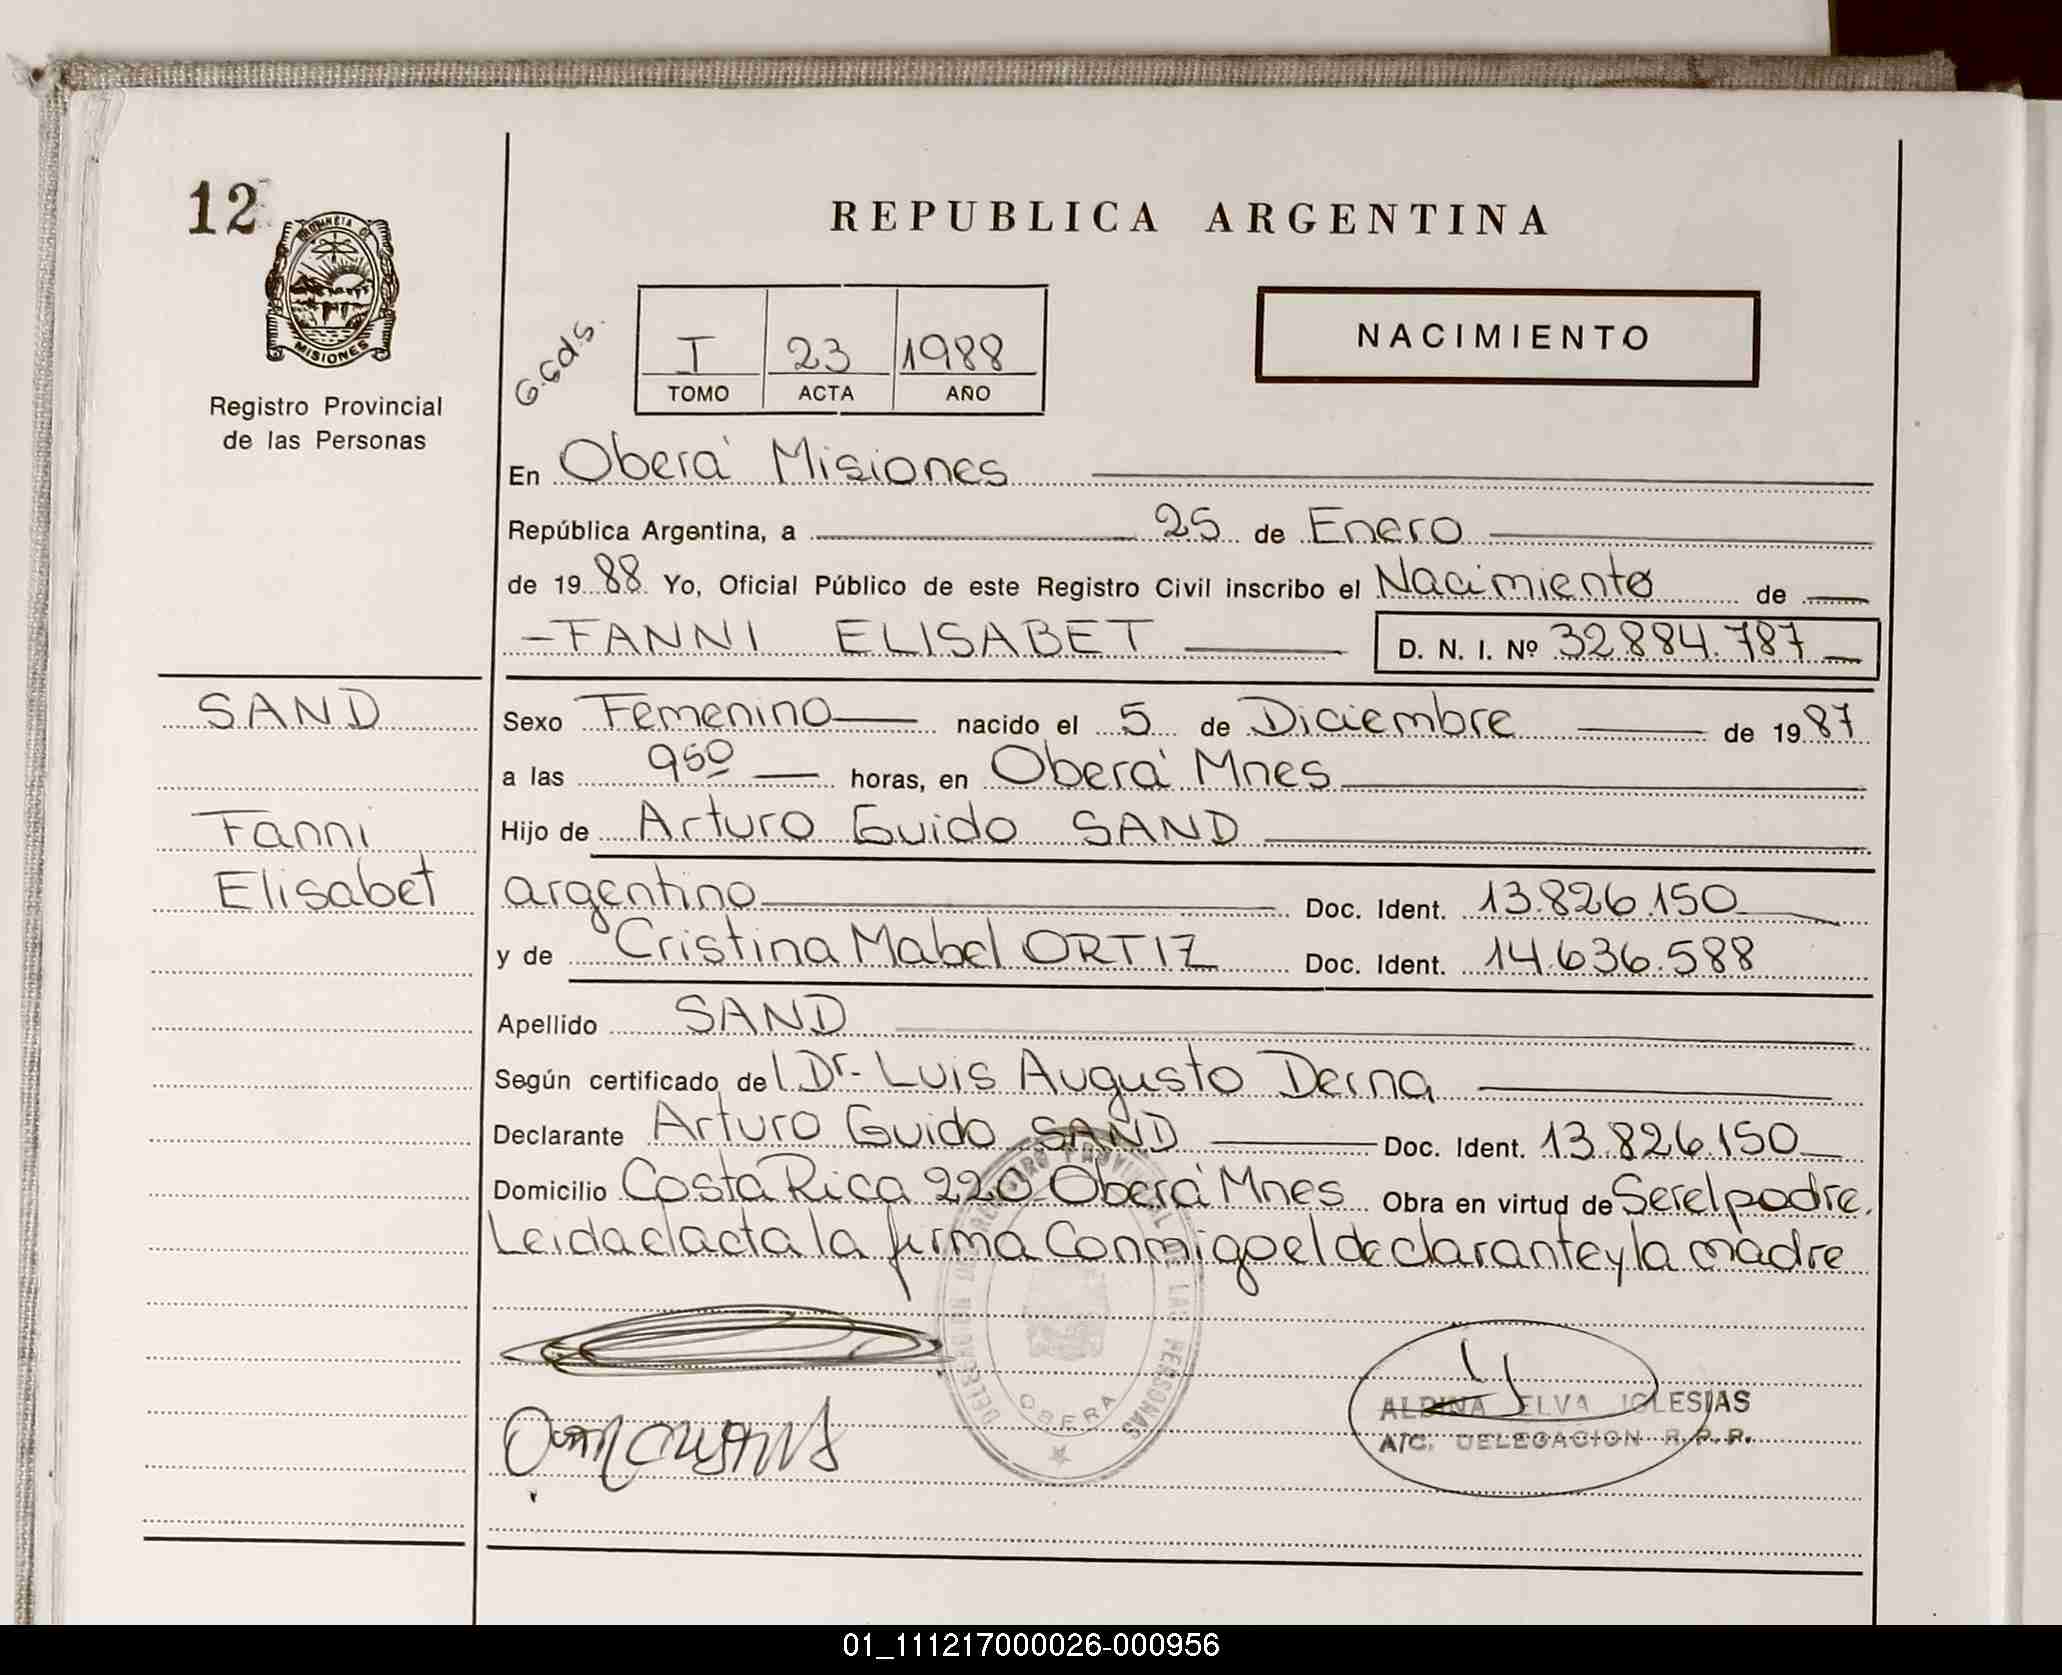 12
PROVINCIA DE
MISIONES
Registro Provincial
de las Personas
REPUBLICA ARGENTINA
G.cds.
I 23 1988
TOMO ACTA AÑO
NACIMIENTO
En Oberá Misiones
República Argentina, a 25 de Enero
de 19 88 Yo, Oficial Público de este Registro Civil inscribo el Nacimiento de
FANNI ELISABET D. N. I. Nº 32.884.787
SAND
Fanni
Elisabet
Sexo Femenino nacido el 5 de Diciembre de 19 87
a las 9 50 horas, en Oberá Mnes
Hijo de Arturo Guido SAND
argentino Doc. Ident. 13.826.150
y de Cristina Mabel ORTIZ Doc. Ident. 14.636.588
Apellido SAND
Según certificado del Dr. Luis Augusto Derna
Declarante Arturo Guido SAND Doc. Ident. 13.826.150
Domicilio Costa Rica 220 Oberá Mnes Obra en virtud de Ser el padre.
Leida el acta la firma Conmigo el declarante y la madre
DELEGACION DE REGISTRO PROVINCIAL DE LAS PERSONAS
OBERA
ALDINA ELVA IGLESIAS
A/C. DELEGACION R. P. P.
01_111217000026-000956